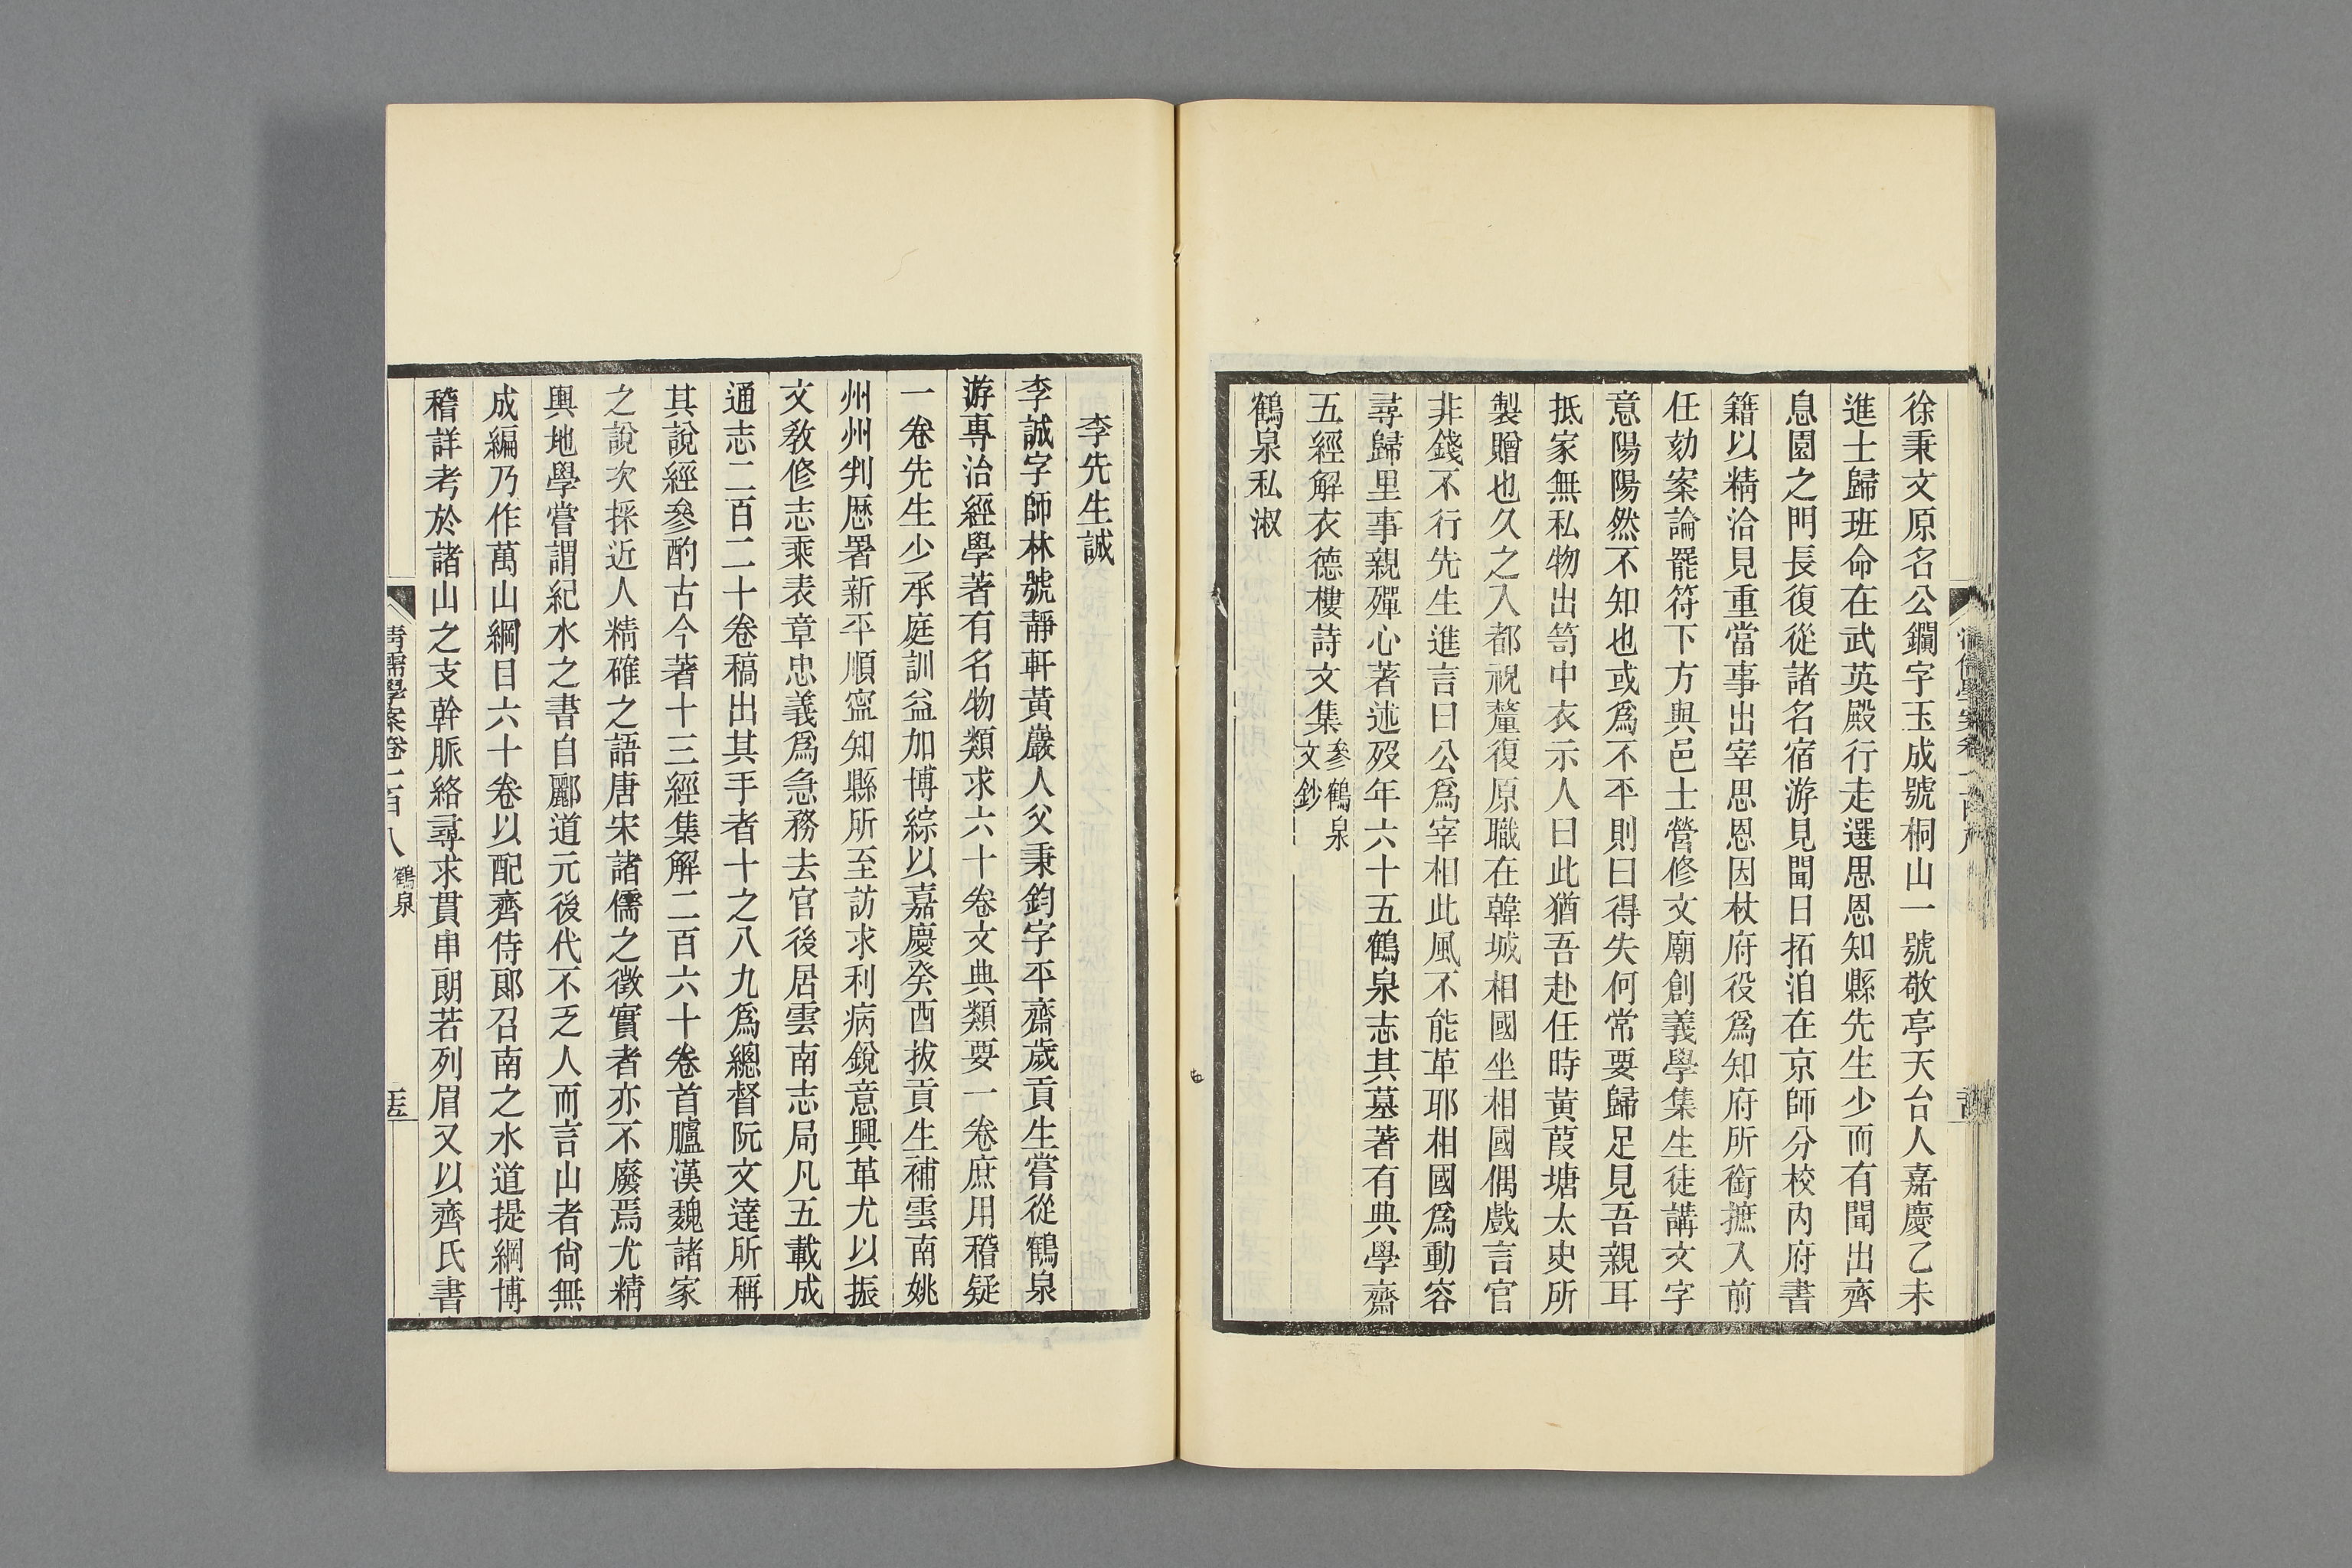 徐秉文原名公鑭字玉成號桐山一號敬亭天台人嘉慶乙未
進士歸班命在武英殿行走選思恩知縣先生少而有聞出齊
息園之門長復從諸名宿游見聞日拓洎在京師分校內府書
籍以精洽見重當事出宰思恩因杖府役爲知府所銜摭入前
任劾案論罷符下方與邑士營修文廟創義學集生徒講文字
意陽陽然不知也或爲不平則曰得失何常要歸足見吾親耳
抵家無私物出笥中衣示人曰此猶吾赴任時黃葭塘太史所
製贈也久之入都祝釐復原職在韓城相國坐相國偶戲言官
非錢不行先生進言曰公爲宰相此風不能革耶相國爲動容
尋歸里事親殫心著述歿年六十五鶴泉志其墓著有典學齋
五經解衣德樓詩文集參鶴泉文鈔
鶴泉私淑
李先生誠
李誠字師林號靜軒黃巖人父秉鈞字平齋歲貢生嘗從鶴泉
游專治經學著有名物類求六十卷文典類要一卷庶用稽疑
一卷先生少承庭訓益加博綜以嘉慶癸酉拔貢生補雲南姚
州州判歷署新平順寧知縣所至訪求利病銳意興革尤以振
文教修志乘表章忠義爲急務去官後居雲南志局凡五載成
通志二百二十卷稿出其手者十之八九爲總督阮文達所稱
其說經參酌古今著十三經集解二百六十卷首臚漢魏諸家
之說次採近人精確之語唐宋諸儒之徵實者亦不廢焉尤精
輿地學嘗謂紀水之書自酈道元後代不乏人而言山者尙無
成編乃作萬山綱目六十卷以配齊侍郞召南之水道提綱博
稽詳考於諸山之支幹脈絡尋求貫串朗若列眉又以齊氏書
清儒學案卷二百八 鶴泉